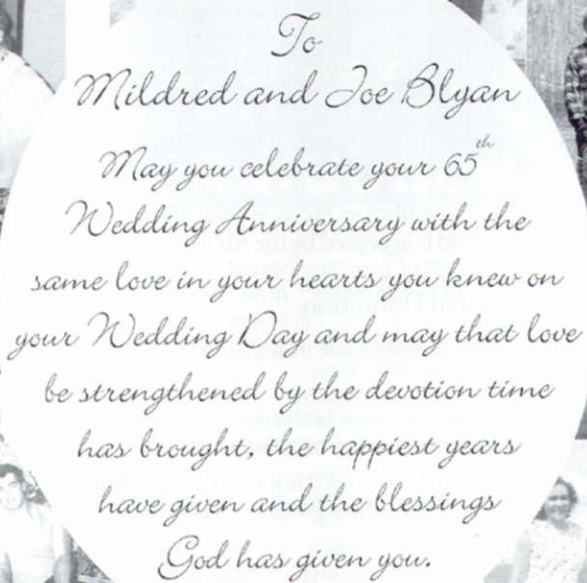 To
Mildred and Joe Blyan
May you celebrate your 65th
Wedding Anniversary with the
same love in your hearts you knew on
your Wedding Day and may that love
be strengthened by the devotion time
has brought, the happiest years
have given and the blessings
God has given you.